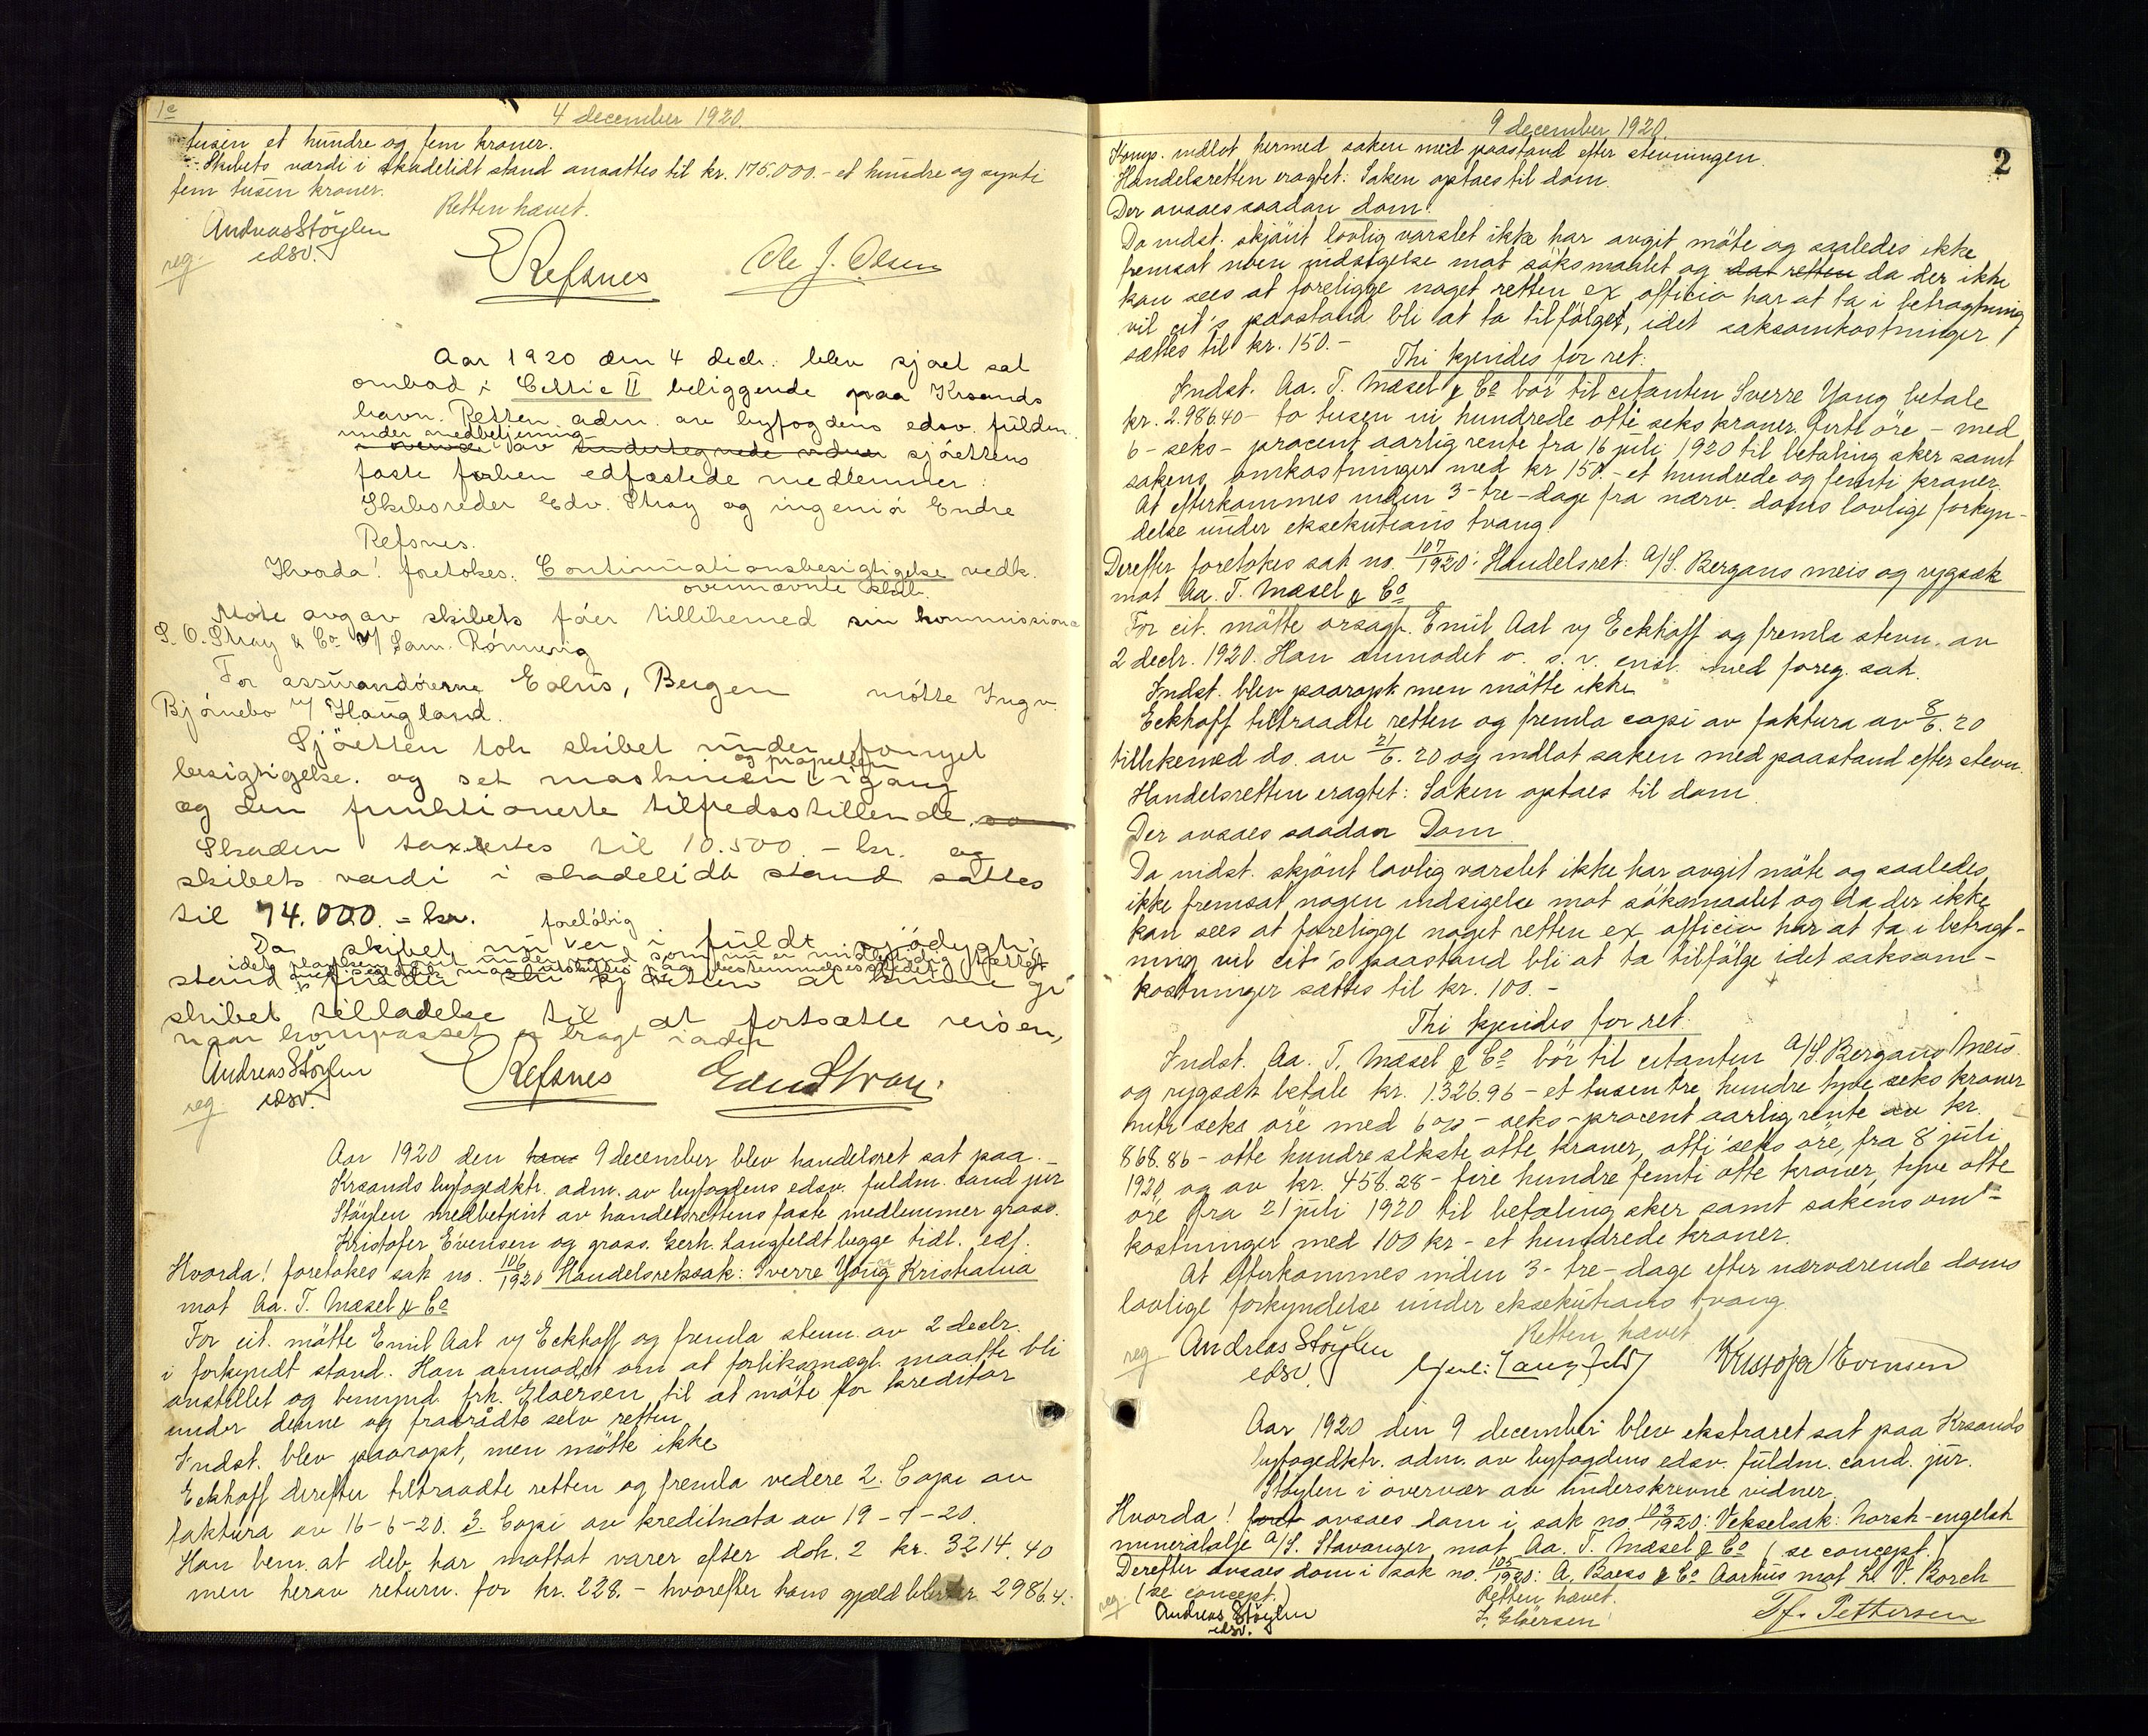 1a
4 december 1920.
tusen et hundre og fem kroner.
Skibets værdi i skadelidt stand ansattes til kr. 175.000.- et hundre og sytti
fem tusen kroner.
Retten hævet.
Andreas Stöylen
edsv.
reg.
E Refsnes
Ole J. Olsen
Aar 1920 den 4 decbr. blev sjöret sat
ombord i Celtic II beliggende paa Krsands
havn. Retten adm. av byfogdens edsv. fuldm.
under medbetjening
i overvær av undertegnede vidner sjörettens
faste forhen edfæstede medlemmer:
Skibsreder Edv. Stray og ingeniör Endre
Refsnes.
Hvorda! foretokes: Continuationsbesigtigelse vedk.
ovennævnte skib.
Möte avgav skibets förer tillikemed sin kommissionær
S. O. Stray & Co v/ Sam. Rönning
For assurandörerne Eolus, Bergen mötte Ingv.
Björnebo v/ Haugland.
Sjöretten tok skibet under fornyet
og propellen
besigtigelse. og set maskinen igang
og den funktionerte tilfredsstillende. so
Skaden taxertes til 10.500.- kr. og
skibets værdi i skadelidt stand sattes
til 74.000.- kr.
foreløbig
Da skibet nu er i fuldt sjödygtig
stand finder sjöretten at kunne gi
skibet tilladelse til at fortsætte reisen,
naar kompasset er bragt iorden
Andreas Stöylen
edsv.
reg
E Refsnes
Edv Stray.
Aar 1920 den 9 december blev handelsret sat paa
Krsands byfogedktr. adm. av byfogdens edsv. fuldm. cand jur
Stöylen medbetjent av handelsrettens faste medlemmer gross.
Kristofer Evensen og gross. Gerh. Langfeldt begge tidl. edf.
Hvorda! foretokes sak no. 106/1920 Handelsretssak: Sverre Young Kristiania
mot Aa. T. Mæsel & Co
For cit. mötte Emil Aal v/ Eckhoff og fremla stevn. av 2 decbr.
i forkyndt stand. Han anmodet om at forliksmægl. maatte bli
anstillet og bemynd. frk. Gløersen til at möte for kreditor
under denne og fratrådte selv retten.
Indst. blev paaropt, men mötte ikke
Eckhoff derefter tiltraadte retten og fremla videre 2. Copi av
faktura av 16-6-20. 3. Copi av kreditnota av 19-7-20.
Han bem. at deb. har mottat varer efter dok. 2 kr. 3214.40
men herav return. for kr. 228.- hvorefter hans gjæld blir kr. 2986.4.
9 december 1920.
2
Komp. indlot hermed saken med paastand efter stevningen.
Handelsretten eragtet: Saken optaes til dom.
Der avsaes saadan dom:
Da indst. skjönt lovlig varslet ikke har avgit möte og saaledes ikke
fremsat noen indsigelse mot söksmaalet og dat retten da der ikke
kan sees at foreligge noget retten ex officio har at ta i betragtning
vil cit's paastand bli at ta tilfölget, idet saksomkostninger
sættes til kr. 150.-
Thi kjendes for ret:
Indst. Aa. T. Mæsel & Co bör til citanten Sverre Young betale
kr. 2.986.40 - to tusen ni hundrede otti seks kroner förti öre - med
6 - seks - procent aarlig rente fra 16 juli 1920 til betaling sker samt
sakens omkostninger med kr 150.- et hundrede og femti kroner.
At efterkommes inden 3 - tre - dage fra nærv. doms lovlige forkyn-
delse under eksekutions tvang.
Derefter foretokes sak no. 107/1920: Handelsret: A/S. Bergans meis og rygsæk
mot Aa. T. Mæsel & Co
For cit. mötte orsagf. Emil Aal v/ Eckhoff og fremla stevn. av
2 decbr. 1920. Han anmodet o. s. v. ensl. med foreg. sak.
Indst. blev paaropt men mötte ikke
Eckhoff tiltraadte retten og fremla copi av faktura av 8/6. 20
tillikemed do. av 21/6. 20 og indlot saken med paastand efter stevn.
Handelsretten eragtet: Saken optaes til dom
Der avsaes saadan Dom
Da indst. skjönt lovlig varslet ikke har avgit möte og saaledes
ikke fremsat nogen indsigelse mot söksmaalet og da der ikke
kan sees at foreligge noget retten ex officio har at ta i betragt-
ning vil cit's paastand bli at ta tilfölge idet saksom-
kostninger sættes til kr. 100.-
Thi kjendes for ret:
Indst. Aa. T. Mæsel & Co bör til citanten A/S. Bergans Meis
og rygsæk betale kr. 1.326.96 - et tusen tre hundre tyve seks kroner
nitti seks öre med 6 % - seks - procent aarlig rente av kr.
868.86 - otte hundre sekste otte kroner, otti seks öre, fra 8 juli
1920, og av kr. 458.28 - fire hundre femti otte kroner, tyve otte
öre fra 21 juli 1920 til betaling sker samt sakens om-
kostninger med 100 kr - et hundrede kroner.
At efterkommes inden 3 - tre - dage efter nærværende doms
lovlige forkyndelse under eksekutions tvang.
Retten hævet
reg
Andreas Stöylen
edsv.
Gerh: Langfeldt
Kristofer Evensen
Aar 1920 den 9 december blev ekstraret sat paa Krsands
byfogedktr. adm. av byfogdens edsv. fuldm. cand. jur.
Stöylen i overvær av underskrevne vidner.
Hvorda! fordt avsaes dom i sak no 103/1920: Vekselsak: Norsk-engelsk
mineralolje A/S. Stavanger mot Aa. T. Mæsel & Co (se concept.)
Derefter avsaes dom i sak no. 105/1920: A. Baess & Co Aarhus mot L. V. Borch
(se concept.)
Retten hævet.
reg.
Andreas Stöylen
edsv.
I. Glöersen
Tf. Pettersen